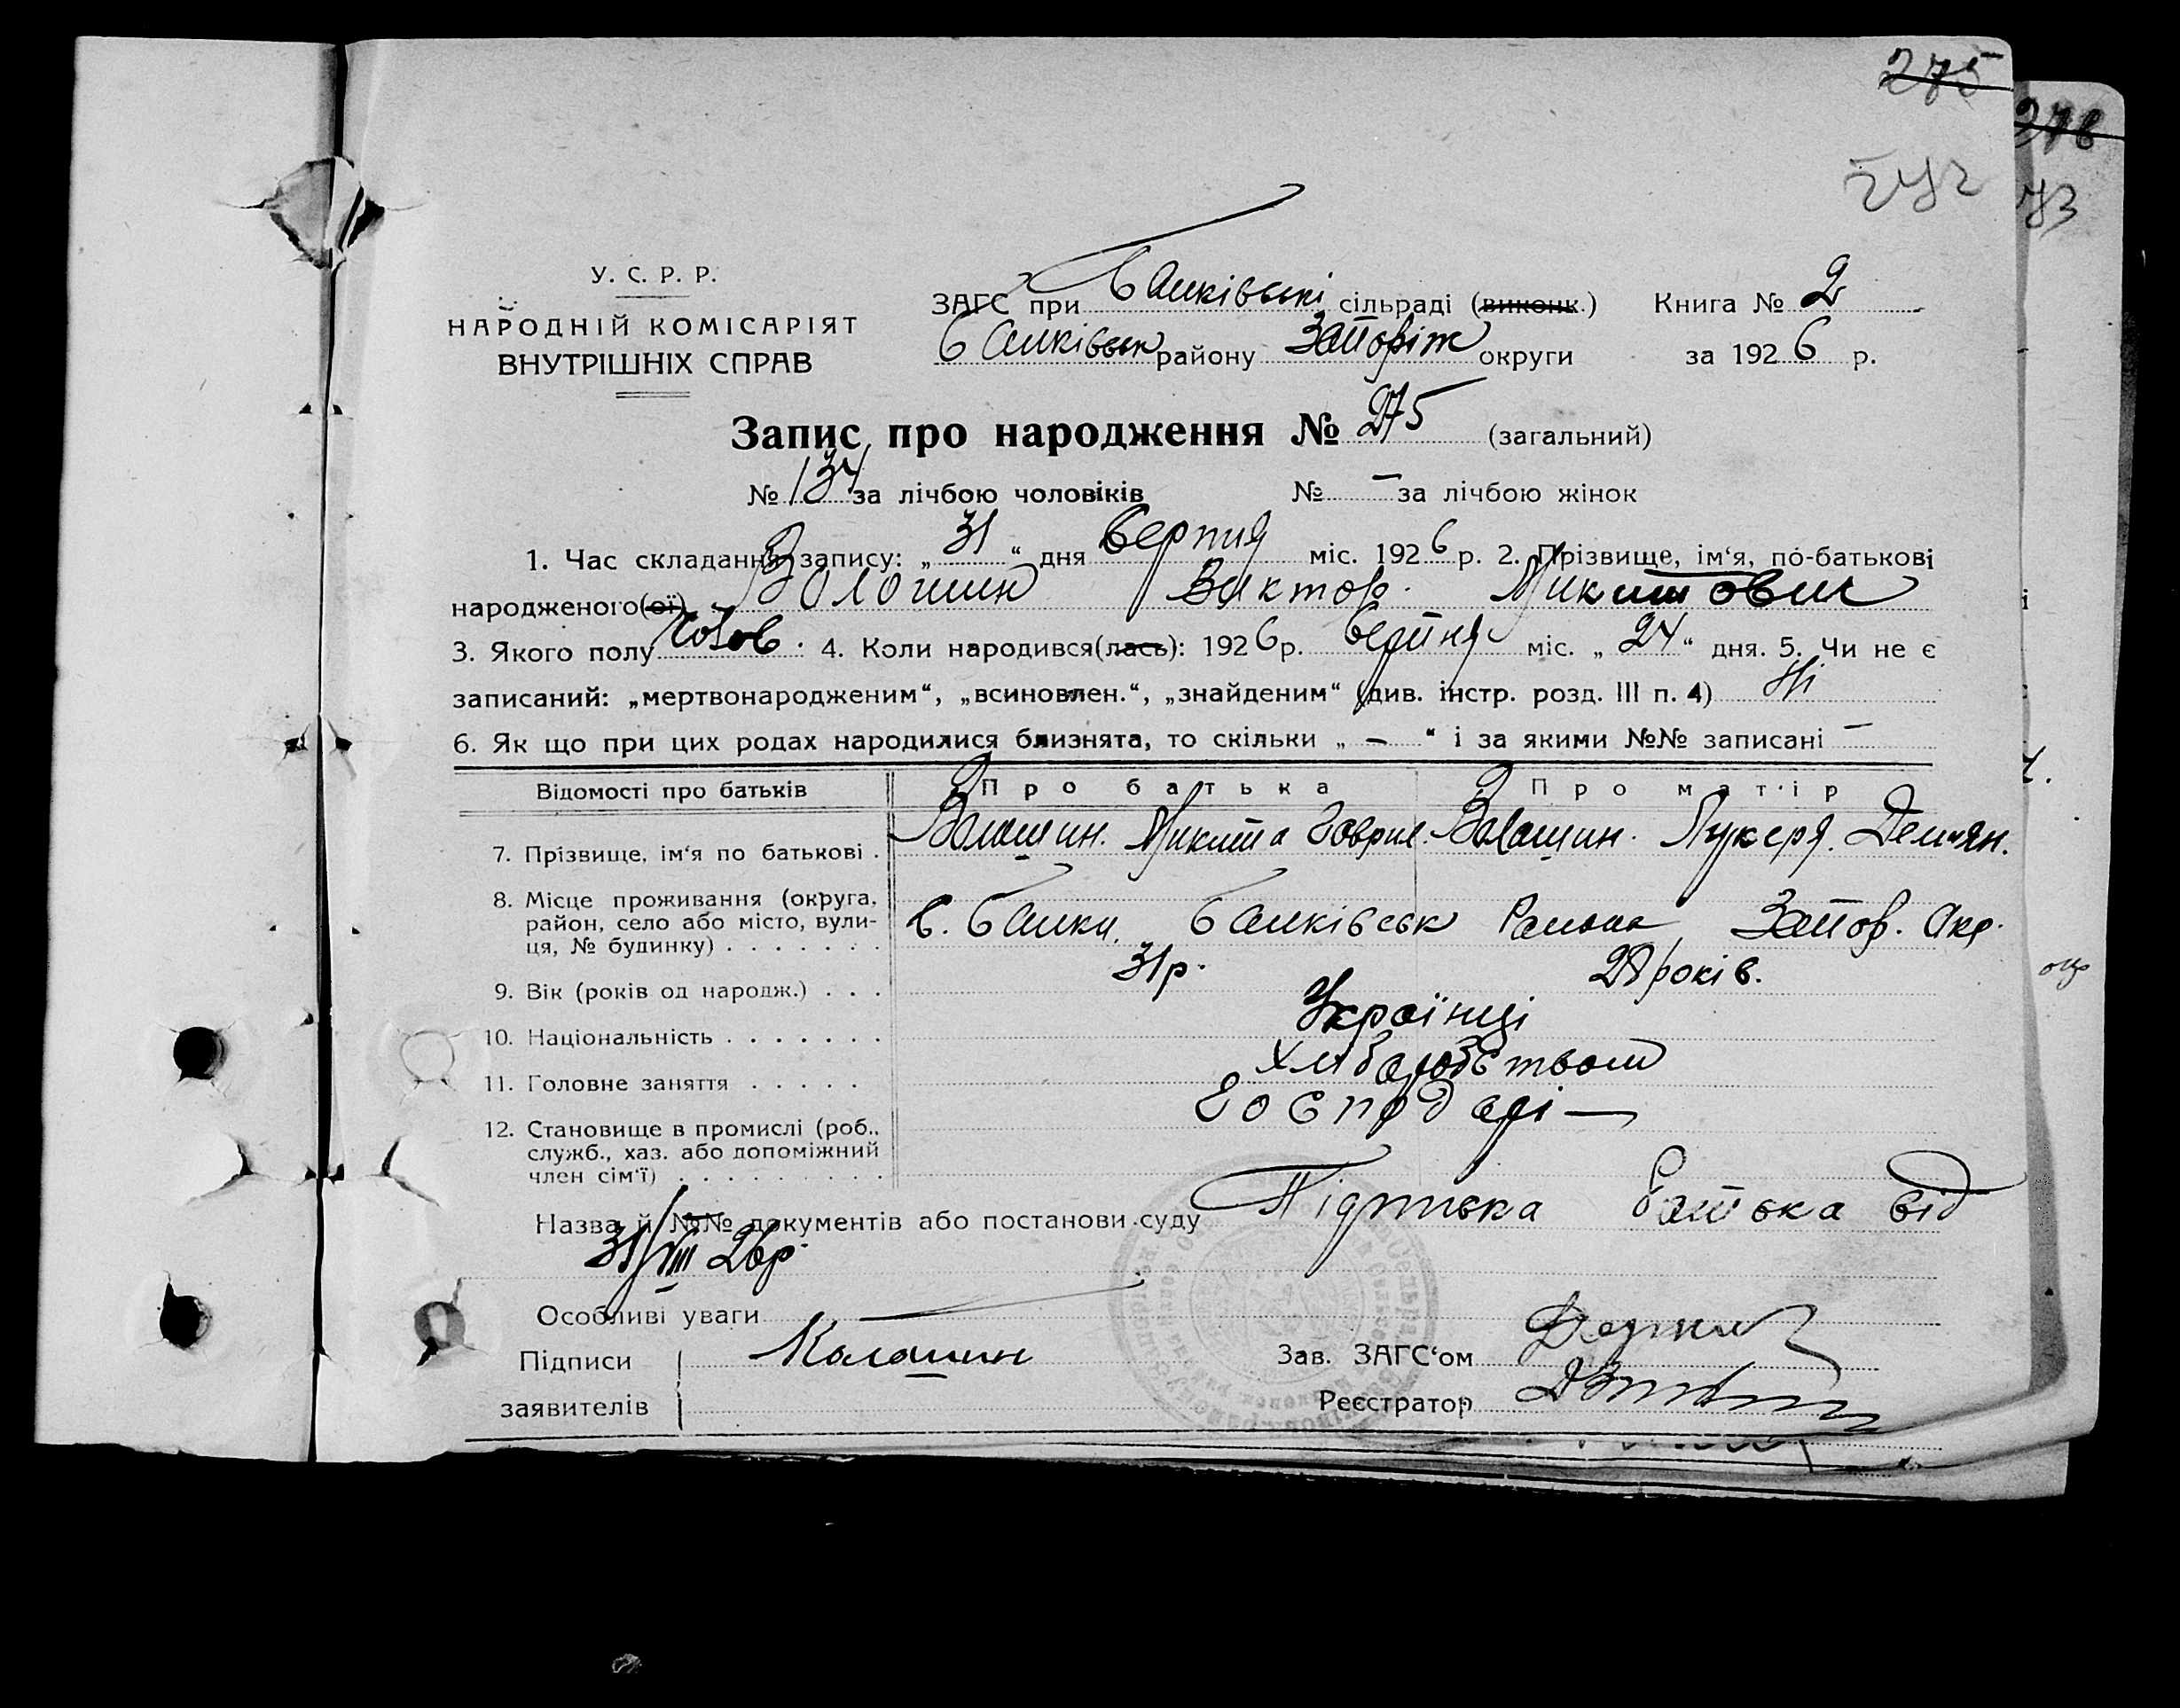 275
278
272
73
У. С. Р. Р.
НАРОДНІЙ КОМІСАРІЯТ
ВНУТРІШНІХ СПРАВ
ЗАГС при Балківські сільраді (виконк.) Книга № 2
Балківськ району Запоріж округи за 1926 р.
Запис про народження № 275 (загальний)
№ 134 за лічбою чоловіків № — за лічбою жінок
1. Час складання запису: „ 31 “ дня Серпня міс. 1926 р. 2. Прізвище, ім‘я, по-батькові
народженого(ої) Волошин Виктор Микитович
3. Якого полу Чолов. 4. Коли народився(лась): 1926 р. Серпня міс. „ 24 “ дня. 5. Чи не є
записаний: „мертвонародженим“, „всиновлен.“, „знайденим“ (див. інстр. розд. III п. 4) Ні
6. Як що при цих родах народилися близнята, то скільки „ — “ і за якими №№ записані —
Відомості про батьків Про батька Про матір
7. Прізвище, ім‘я по батькові . Волошин. Микита Гаврил. Волошин. Лукеря. Демьян.
8. Місце проживання (округа,
район, село або місто, вули-
ця, № будинку) . . . . . . . С. Балки, Балківськ Района Запор. Окр.
9. Вік (років од народж.) . . . 31 р. 28 років.
10. Національність . . . . . . . Українці
11. Головне заняття . . . . . Хлібаробством
12. Становище в промислі (роб.,
служб., хаз. або допоміжний
член сім‘ї) . . . . . . . . . Господарі —
Назва й №№ документів або постанови суду Підписька батька від
31/VIII 26р.
Особливі уваги
Підписи Волошин Зав. ЗАГС‘ом
заявителів Реєстратор